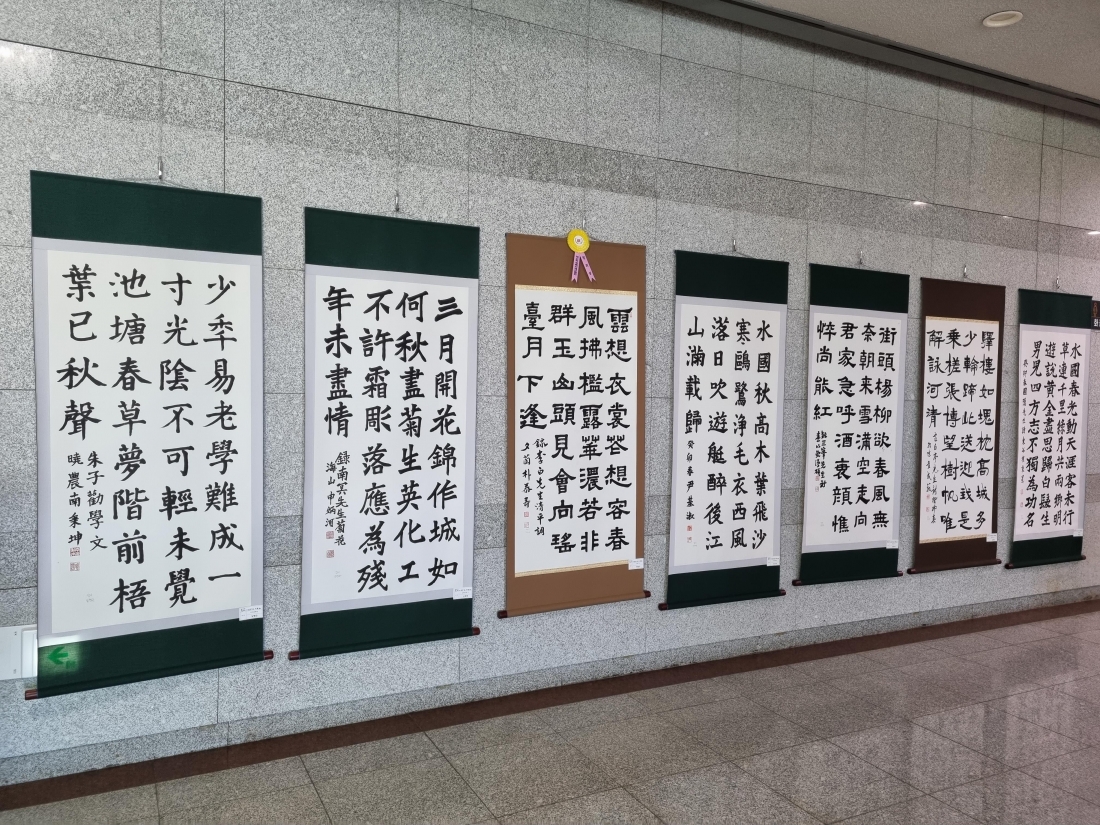 少秊易老學難成一
寸光陰不可輕未覺
池塘春草夢階前梧
葉已秋聲
朱子勸學文
曉農南秉坤
三月開花錦作城如
何秋盡菊生英化工
不許霜彫落應為殘
年未盡情
錄南冥先生菊花
海山申炳
雲想衣裳花想容春
風拂檻露華濃若非
群玉山頭見會向瑤
臺月下逢
錄李白先生清平調
水國秋高木葉飛沙
寒鷗鷺浄毛衣西風
落日吹遊艇醉後江
山滿載歸
癸卯春尹
街頭楊柳欲春風無
奈朝來雪滿空走向
君家急呼酒衰顔憔
悴尚能紅
驛樓如塊枕高城多
少輪蹄此送迎我是
乘槎張博望樹帆唯
解訴河清
水國春光動天涯客未行
草連千里綠月共兩鄉明
遊說黃金盡思歸白髮生
男兒四方志不獨為功名